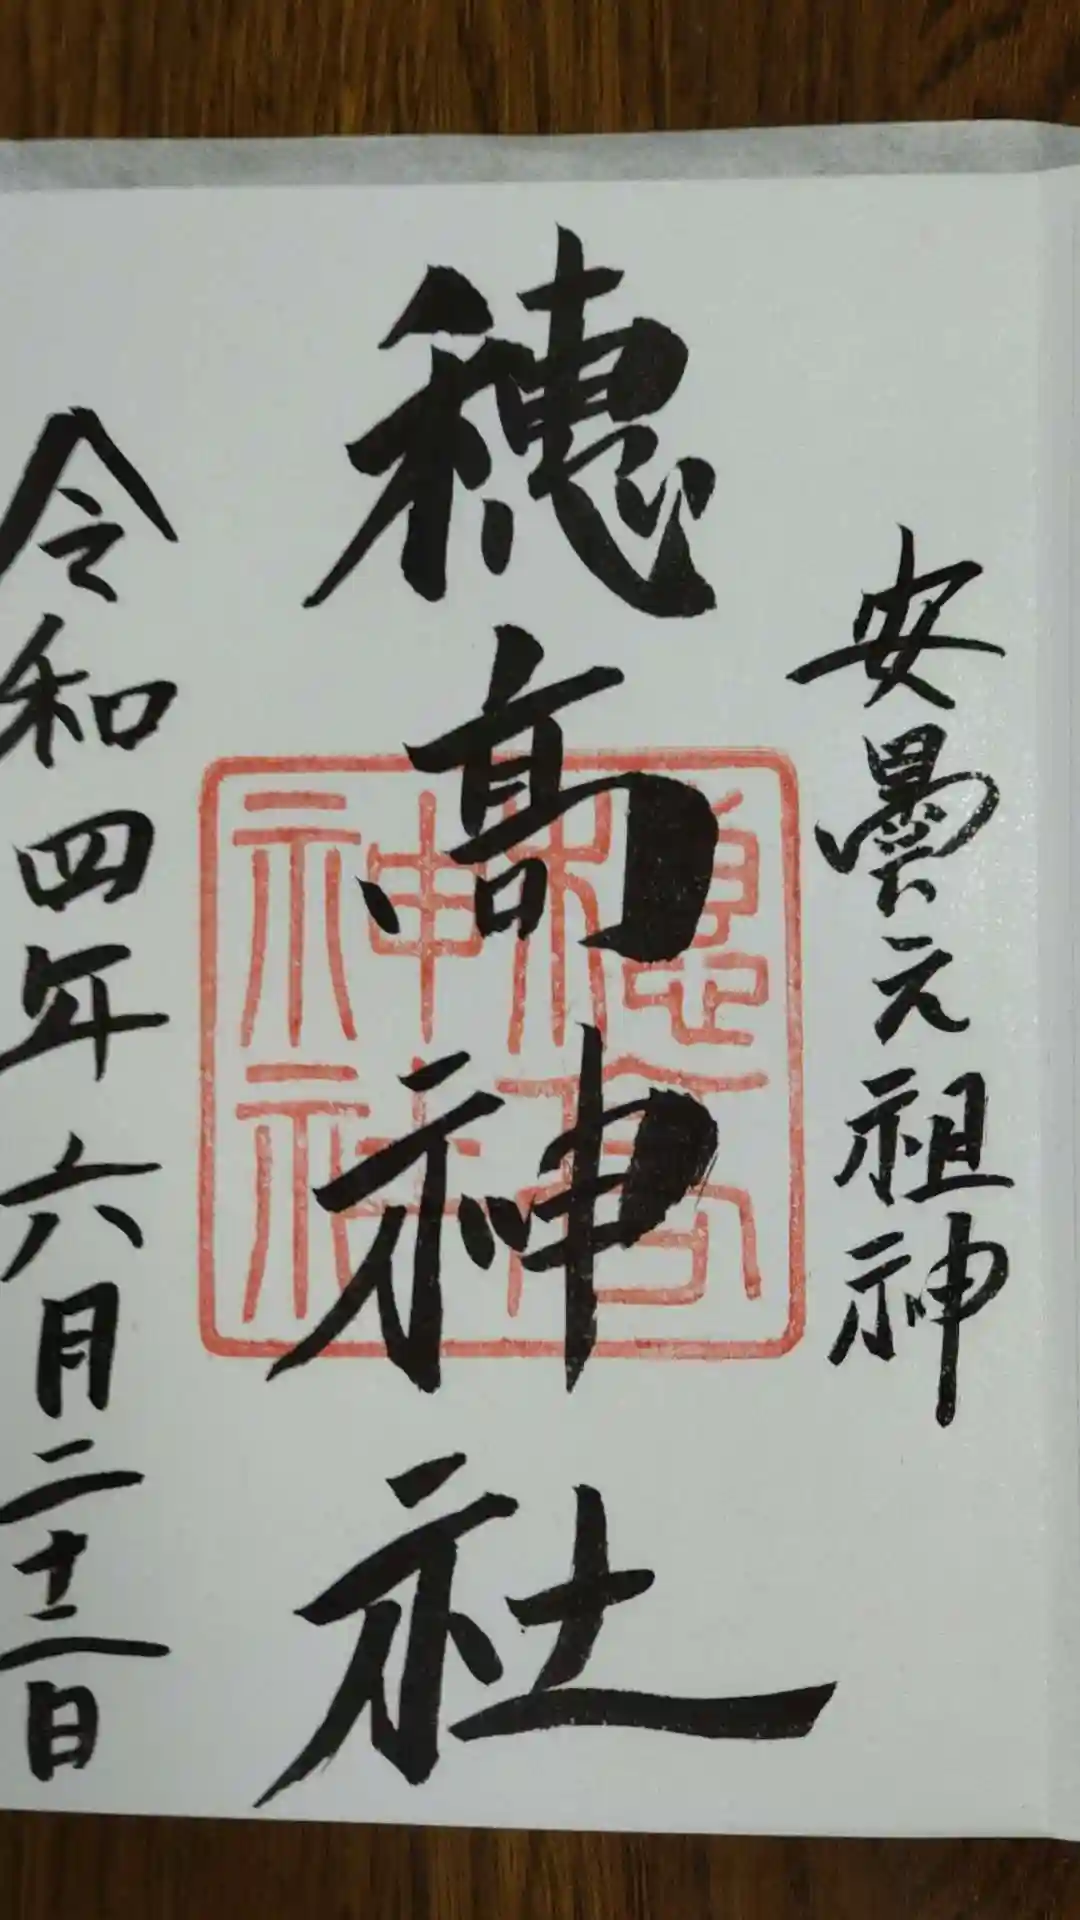 安曇元祖神
穂高神社
穂高
神社
令和四年六月二十二日